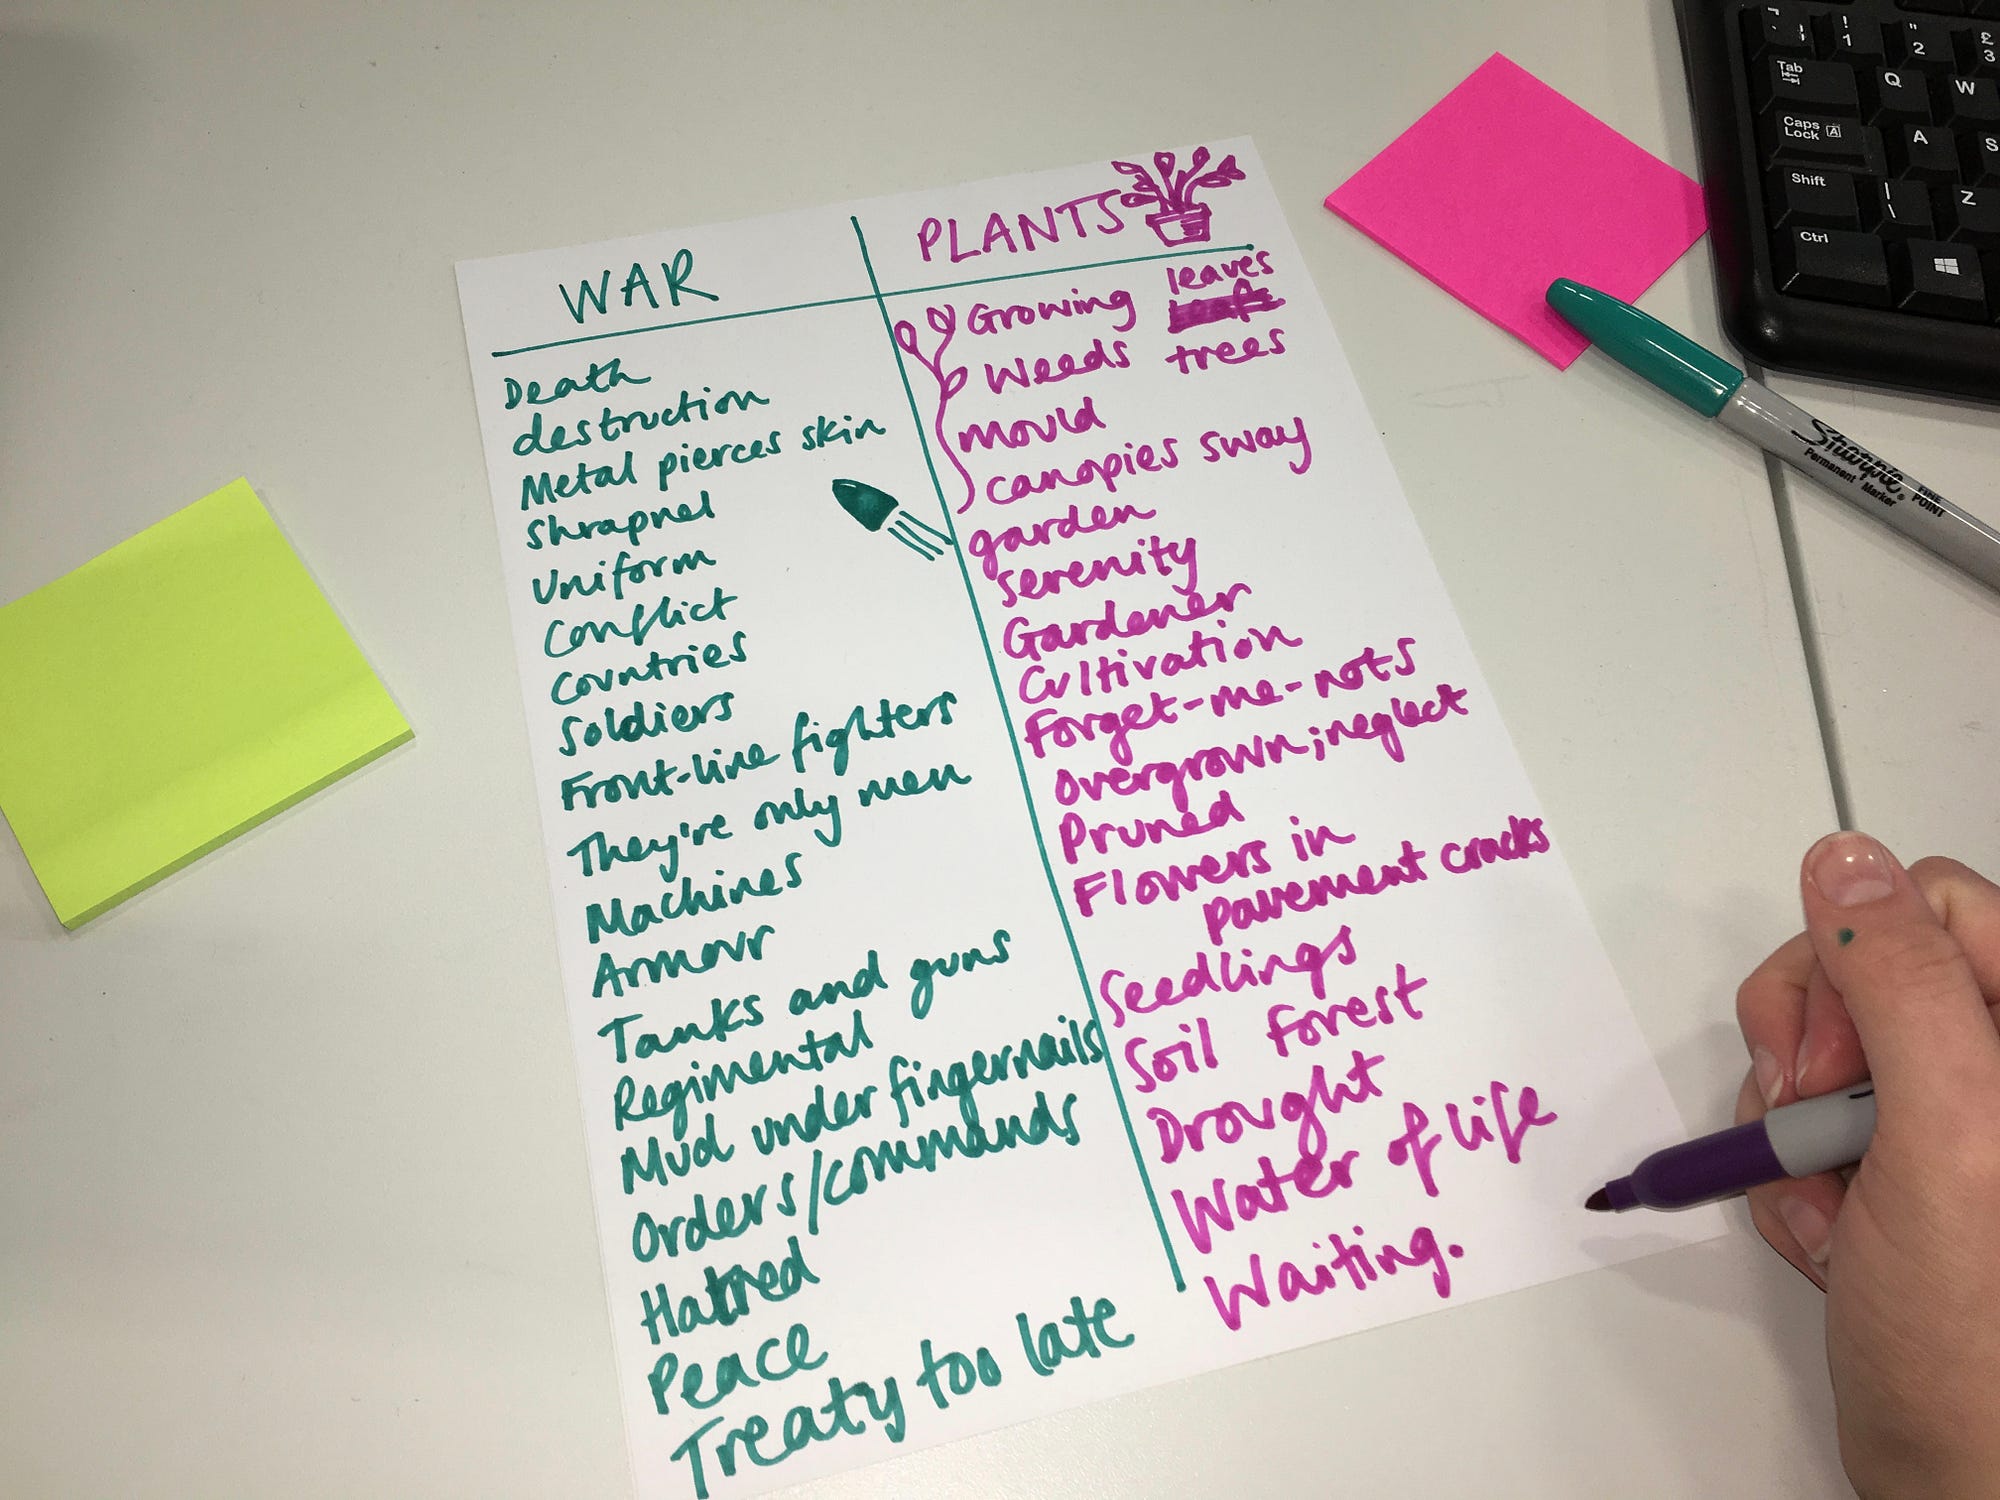 WAR
Death
destruction
Metal pierces skin
Shrapnel
Uniform
Conflict
Countries
Soldiers
Front-line fighters
They're only men
Machines
Armour
Tanks and guns
Regimental
Mud under fingernails
Orders/commands
Hatred
Peace
Treaty too late
PLANTS
Growing leaves
Weeds trees
Mould
canopies sway
garden
serenity
Gardener
Cultivation
Forget-me-nots
Overgrown; neglect
Pruned
Flowers in
pavement cracks
Seedlings
Soil Forest
Drought
Water of life
Waiting.
Sharpie
Permanent Marker
FINE
POINT
! 1
" 2
£ 3
Tab
Q
W
Caps
Lock A
A
S
Shift
| \
Z
Ctrl